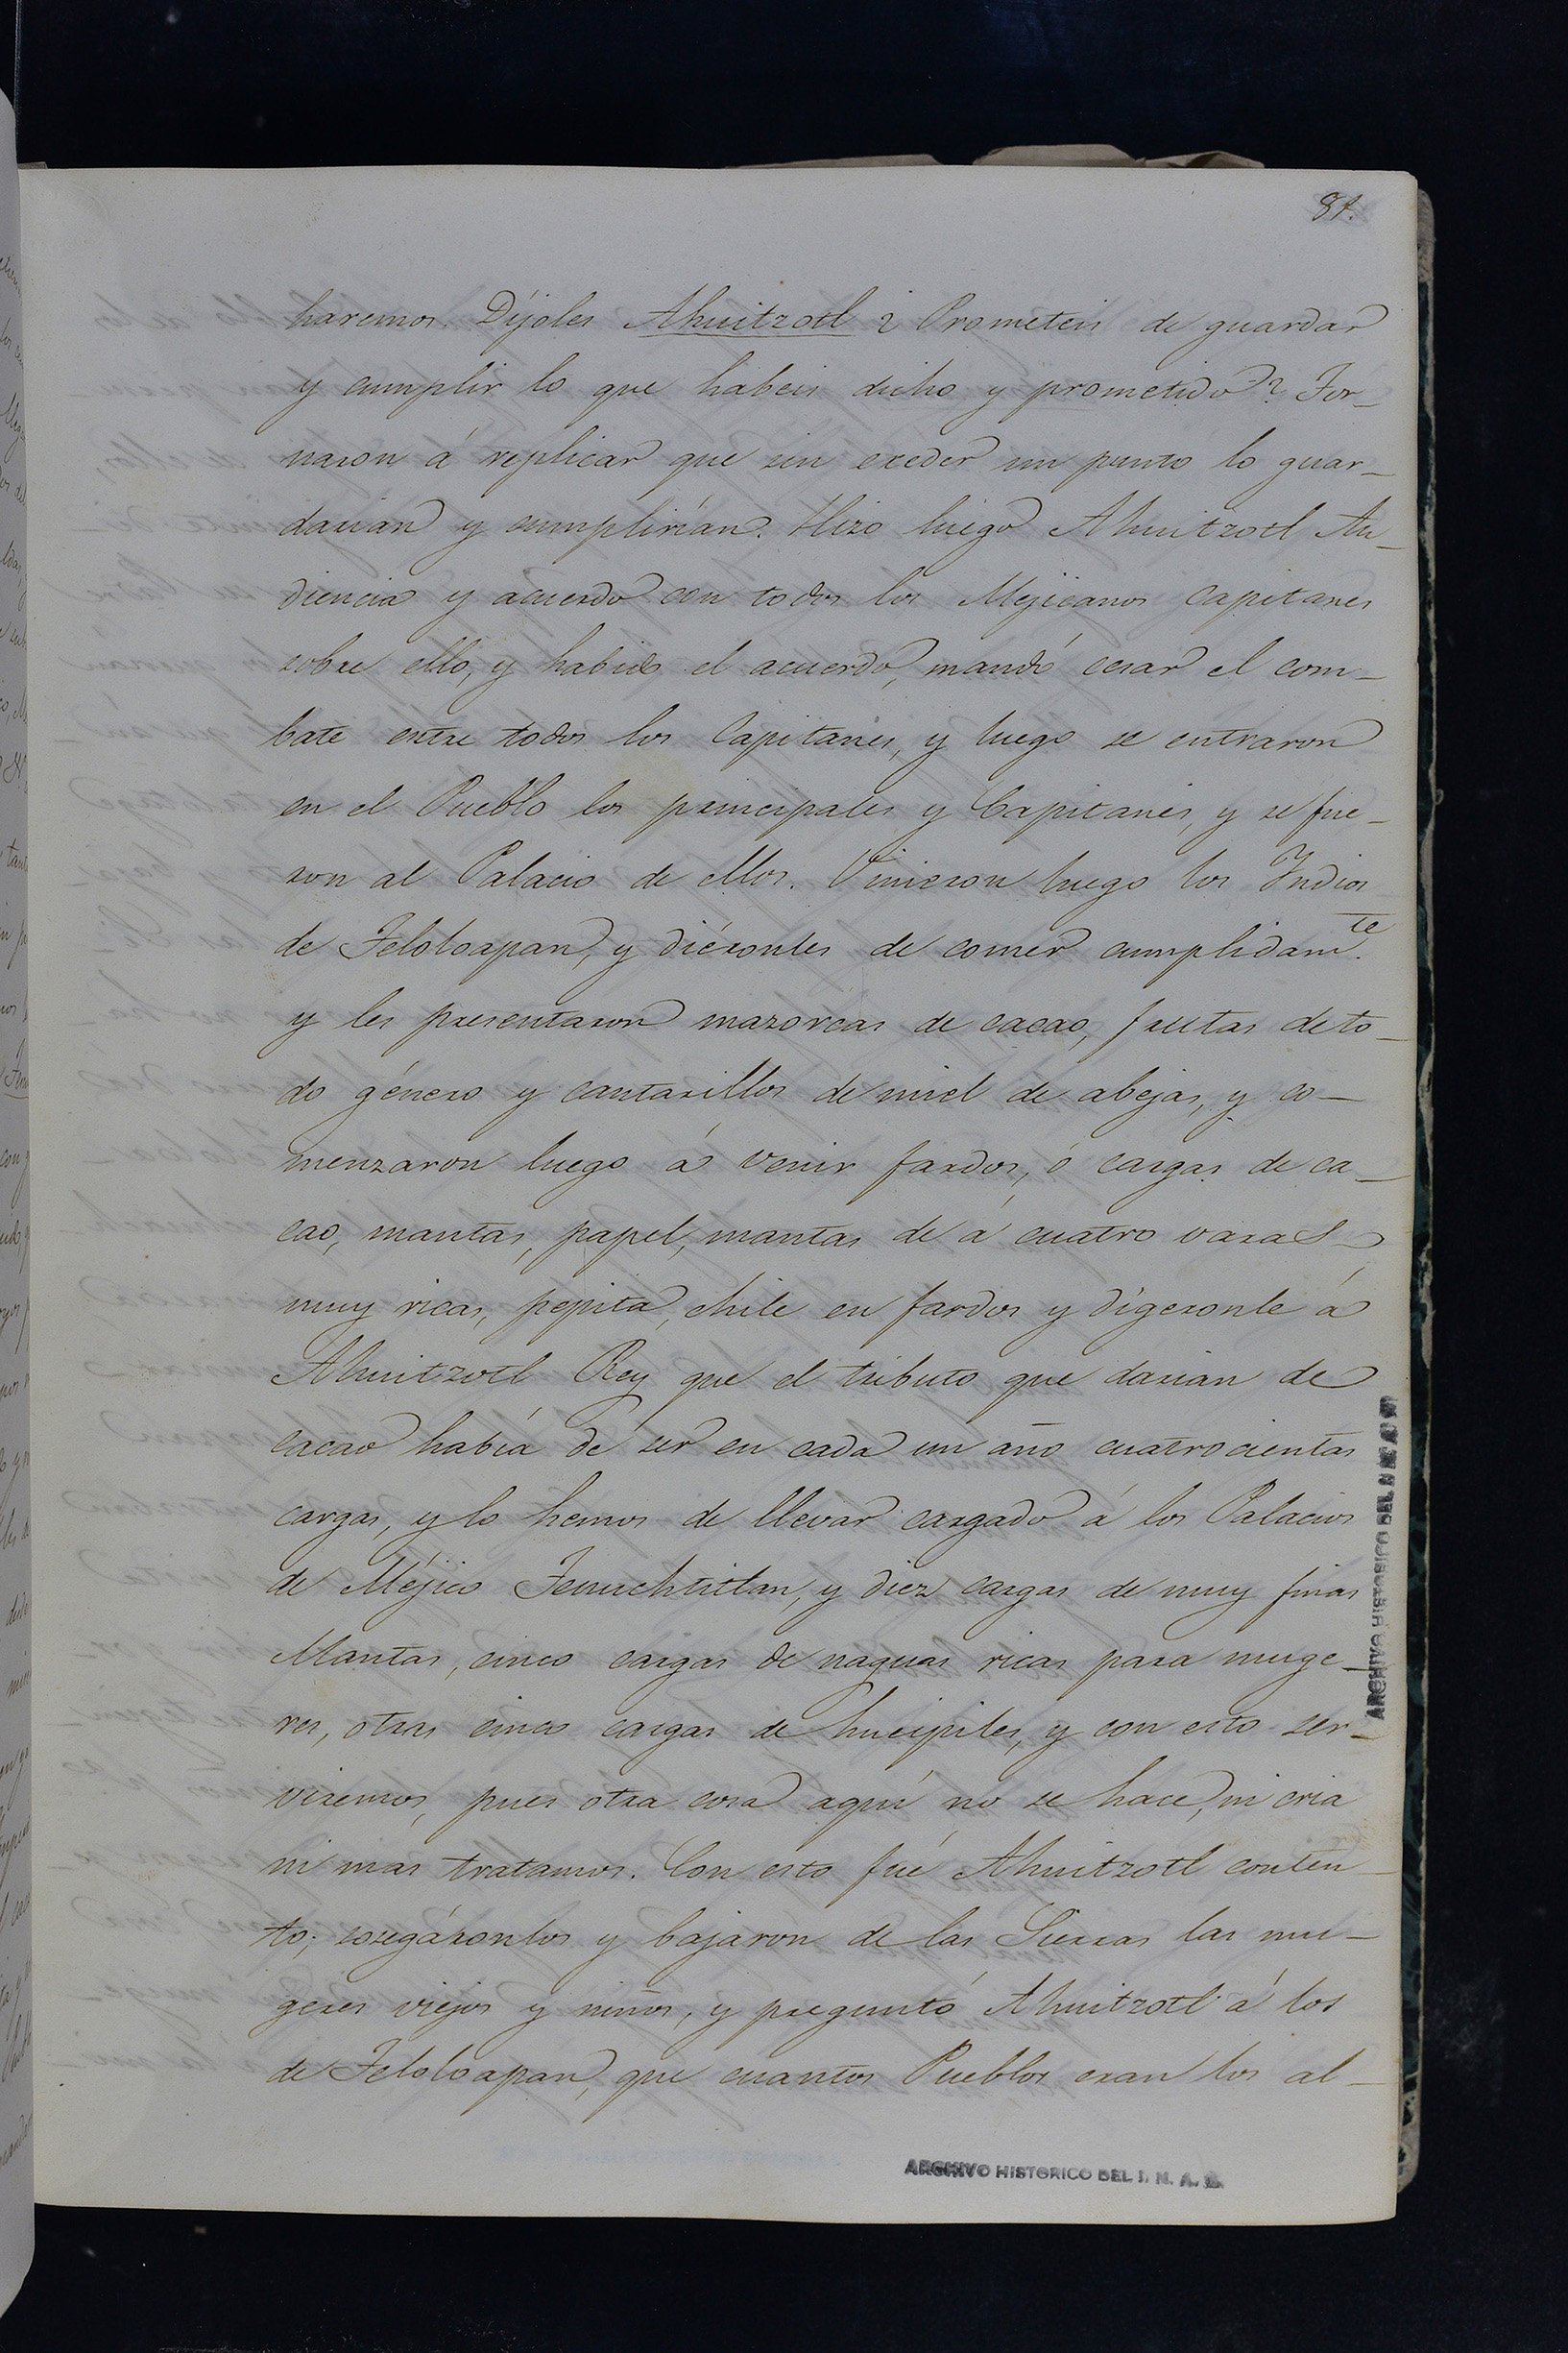 81.
haremos. Díjoles Ahuitzotl ¿ Prometeis de guardar
y cumplir lo que habeis dicho y prometido? Tor-
naron á replicar que sin exeder un punto lo guar-
darian y cumplirían. Hizo luego Ahuitzotl Au-
diencia y acuerdo con todos los Mejicanos capitanes
sobre ello, y habido el acuerdo, mandó cesar el com-
bate entre todos los Capitanes, y luego se entraron
en el Pueblo los principales y Capitanes, y se fue-
ron al Palacio de ellos. Vinieron luego los Indios
de Teloloapan, y diéronles de comer cumplidamte.
y les presentaron mazorcas de cacao, frutas de to-
do género y cantarillos de miel de abejas, y co-
menzaron luego á venir fardos, ó cargas de ca-
cao, mantas, papel, mantas de á cuatro varas
muy ricas, pepita, chile en fardos y digeronle á
Ahuitzotl Rey que el tributo que darian de
cacao había de ser en cada un año cuatrocientas
cargas, y lo hemos de llevar cargado á los Palacios
de Méjico Tenuchtitlan, y diez cargas de muy finas
Mantas, cinco cargas de naguas ricas para muge-
res, otras cinco cargas de hueipiles, y con esto ser-
viremos, pues otra cosa aquí no se hace, ni cria
ni mas tratamos. Con esto fué Ahuitzotl conten-
to; sosegáronlos y bajaron de las Sierras las mu-
geres viejos y niños, y preguntó Ahuitzotl á los
de Teloloapan, que cuantos Pueblos eran los al-
ARCHIVO HISTORICO DEL I. N. A. H.
ARCHIVO HISTORICO DEL I. N. A. H.